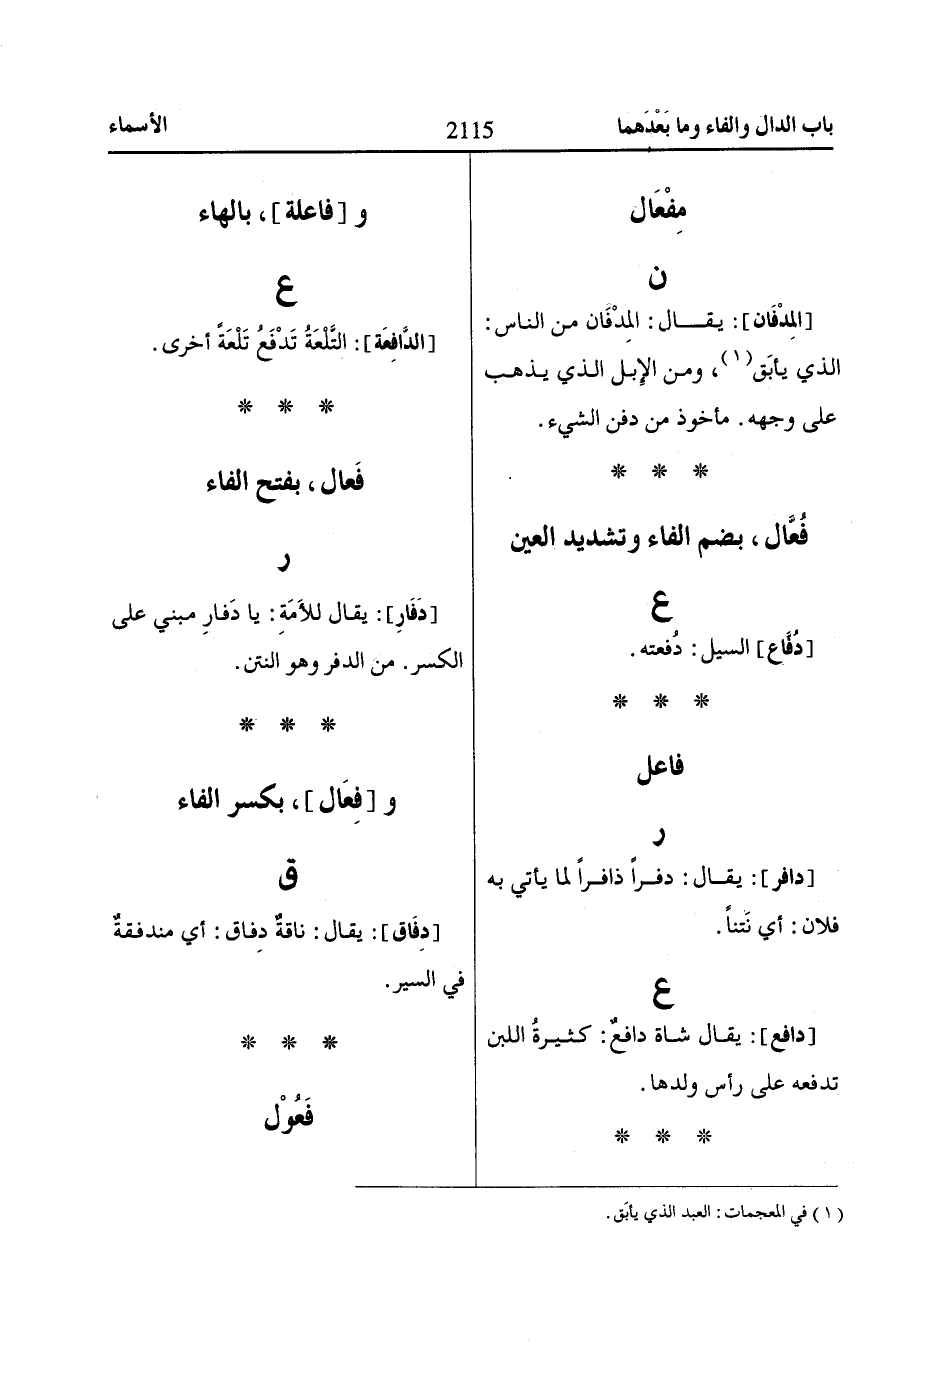 باب الدال والفاء وما بَعْدَهما
2115
الأسماء
مِفْعَال
ن
[المِدْفَان]: يقــال: المِدْفَان من الناس:
الذي يأبَق(١)، ومن الإبل الذي يذهب
على وجهه. مأخوذ من دفن الشيء.
* * *
فُعَّال، بضم الفاء وتشديد العين
ع
[دُفَّاع] السيل: دُفعته.
* * *
فاعل
ر
[دافر]: يقال: دفراً ذافراً لما يأتي به
فلان: أي نَتناً.
ع
[دافع]: يقال شاة دافعٌ: كثيرةُ اللبن
تدفعه على رأس ولدها.
* * *
و [فاعلة]، بالهاء
ع
[الدَّافِعَة]: التَّلْعَةُ تَدْفَعُ تَلْعَةً أخرى.
* * *
فَعال، بفتح الفاء
ر
[دَفَارِ]: يقال للأَمَةِ: يا دَفارِ مبني على
الكسر. من الدفر وهو النتن.
* * *
و [فِعَال]، بكسر الفاء
ق
[دِفَاق]: يقال: ناقةٌ دِفاق: أي مندفقةٌ
في السير.
* * *
فَعُوْل
(١) في المعجمات: العبد الذي يأبَق.